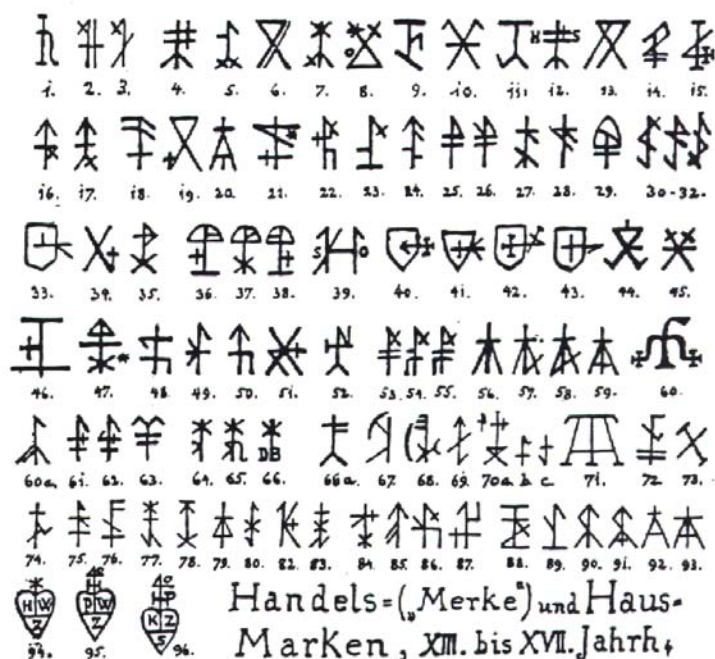 H S
1. 2. 3. 4. 5. 6. 7. 8. 9. 10. 11. 12. 13. 14. 15.
16. 17. 18. 19. 20. 21. 22. 23. 24. 25. 26. 27. 28. 29. 30-32.
S O
33. 34. 35. 36. 37. 38. 39. 40. 41. 42. 43. 44. 45.
46. 47. 48. 49. 50. 51. 52. 53. 54. 55. 56. 57. 58. 59. 60.
DB
60a. 61. 62. 63. 64. 65. 66. 66a. 67. 68. 69. 70a b c 71. 72 73.
74. 75. 76. 77. 78. 79. 80. 82. 83. 84. 85. 86. 87. 88. 89. 90. 91. 92. 93.
H W Z
P W Z
P K Z S
94. 95. 96.
Handels=(„Merke“) und Haus-
Marken, XIII. bis XVII. Jahrh.